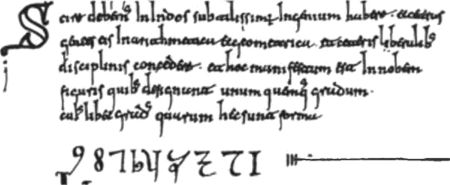 Scire debem' In Indos subtilissimū Ingenium habere. et ceteras
gentes eis In arithmetica et geometrica. et ceteris liberalib'
disciplinis concedere. et hoc manifestum est In nobem
figuris quib' designant unum quemq' gradum.
cui' libet grad' quarum hec sunt forme
9 8 7 6 5 4 3 2 1